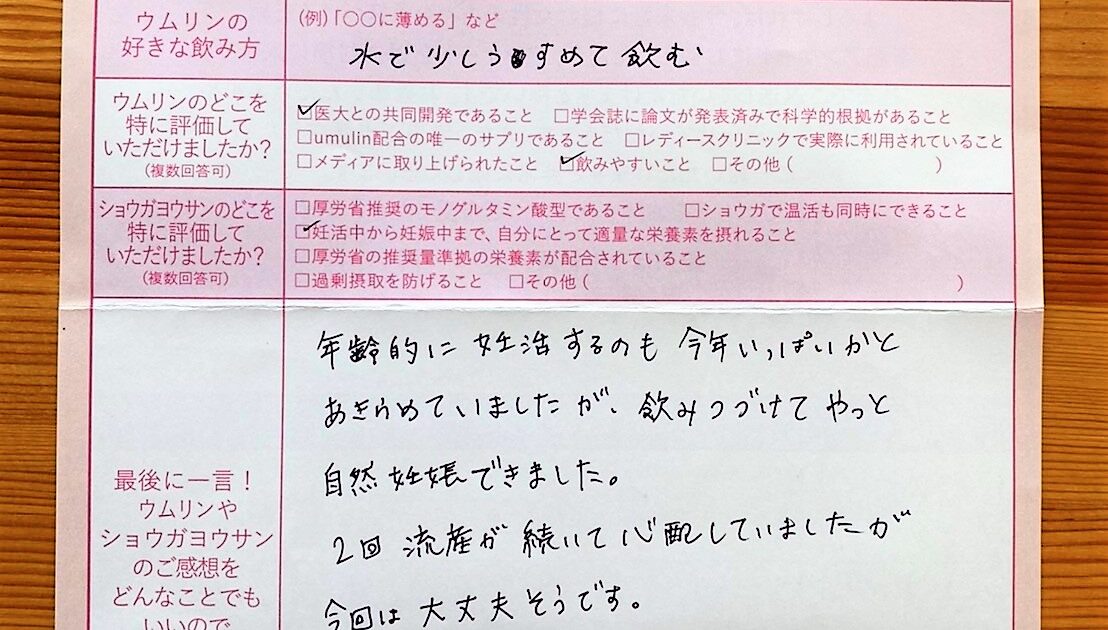 ウムリンの
好きな飲み方
(例)「○○に薄める」など
水で少しうすめて飲む
ウムリンのどこを
特に評価して
いただけましたか?
(複数回答可)
☑医大との共同開発であること □学会誌に論文が発表済みで科学的根拠があること
□umulin配合の唯一のサプリであること □レディースクリニックで実際に利用されていること
□メディアに取り上げられたこと ☑飲みやすいこと □その他( )
ショウガヨウサンのどこを
特に評価して
いただけましたか?
(複数回答可)
□厚労省推奨のモノグルタミン酸型であること □ショウガで温活も同時にできること
☑妊活中から妊娠中まで、自分にとって適量な栄養素を摂れること
□厚労省の推奨量準拠の栄養素が配合されていること
□過剰摂取を防げること □その他( )
最後に一言!
ウムリンや
ショウガヨウサン
のご感想を
どんなことでも
いいので
年齢的に妊活するのも今年いっぱいかと
あきらめていましたが、飲みつづけてやっと
自然妊娠できました。
2回流産が続いて心配していましたが
今回は大丈夫そうです。